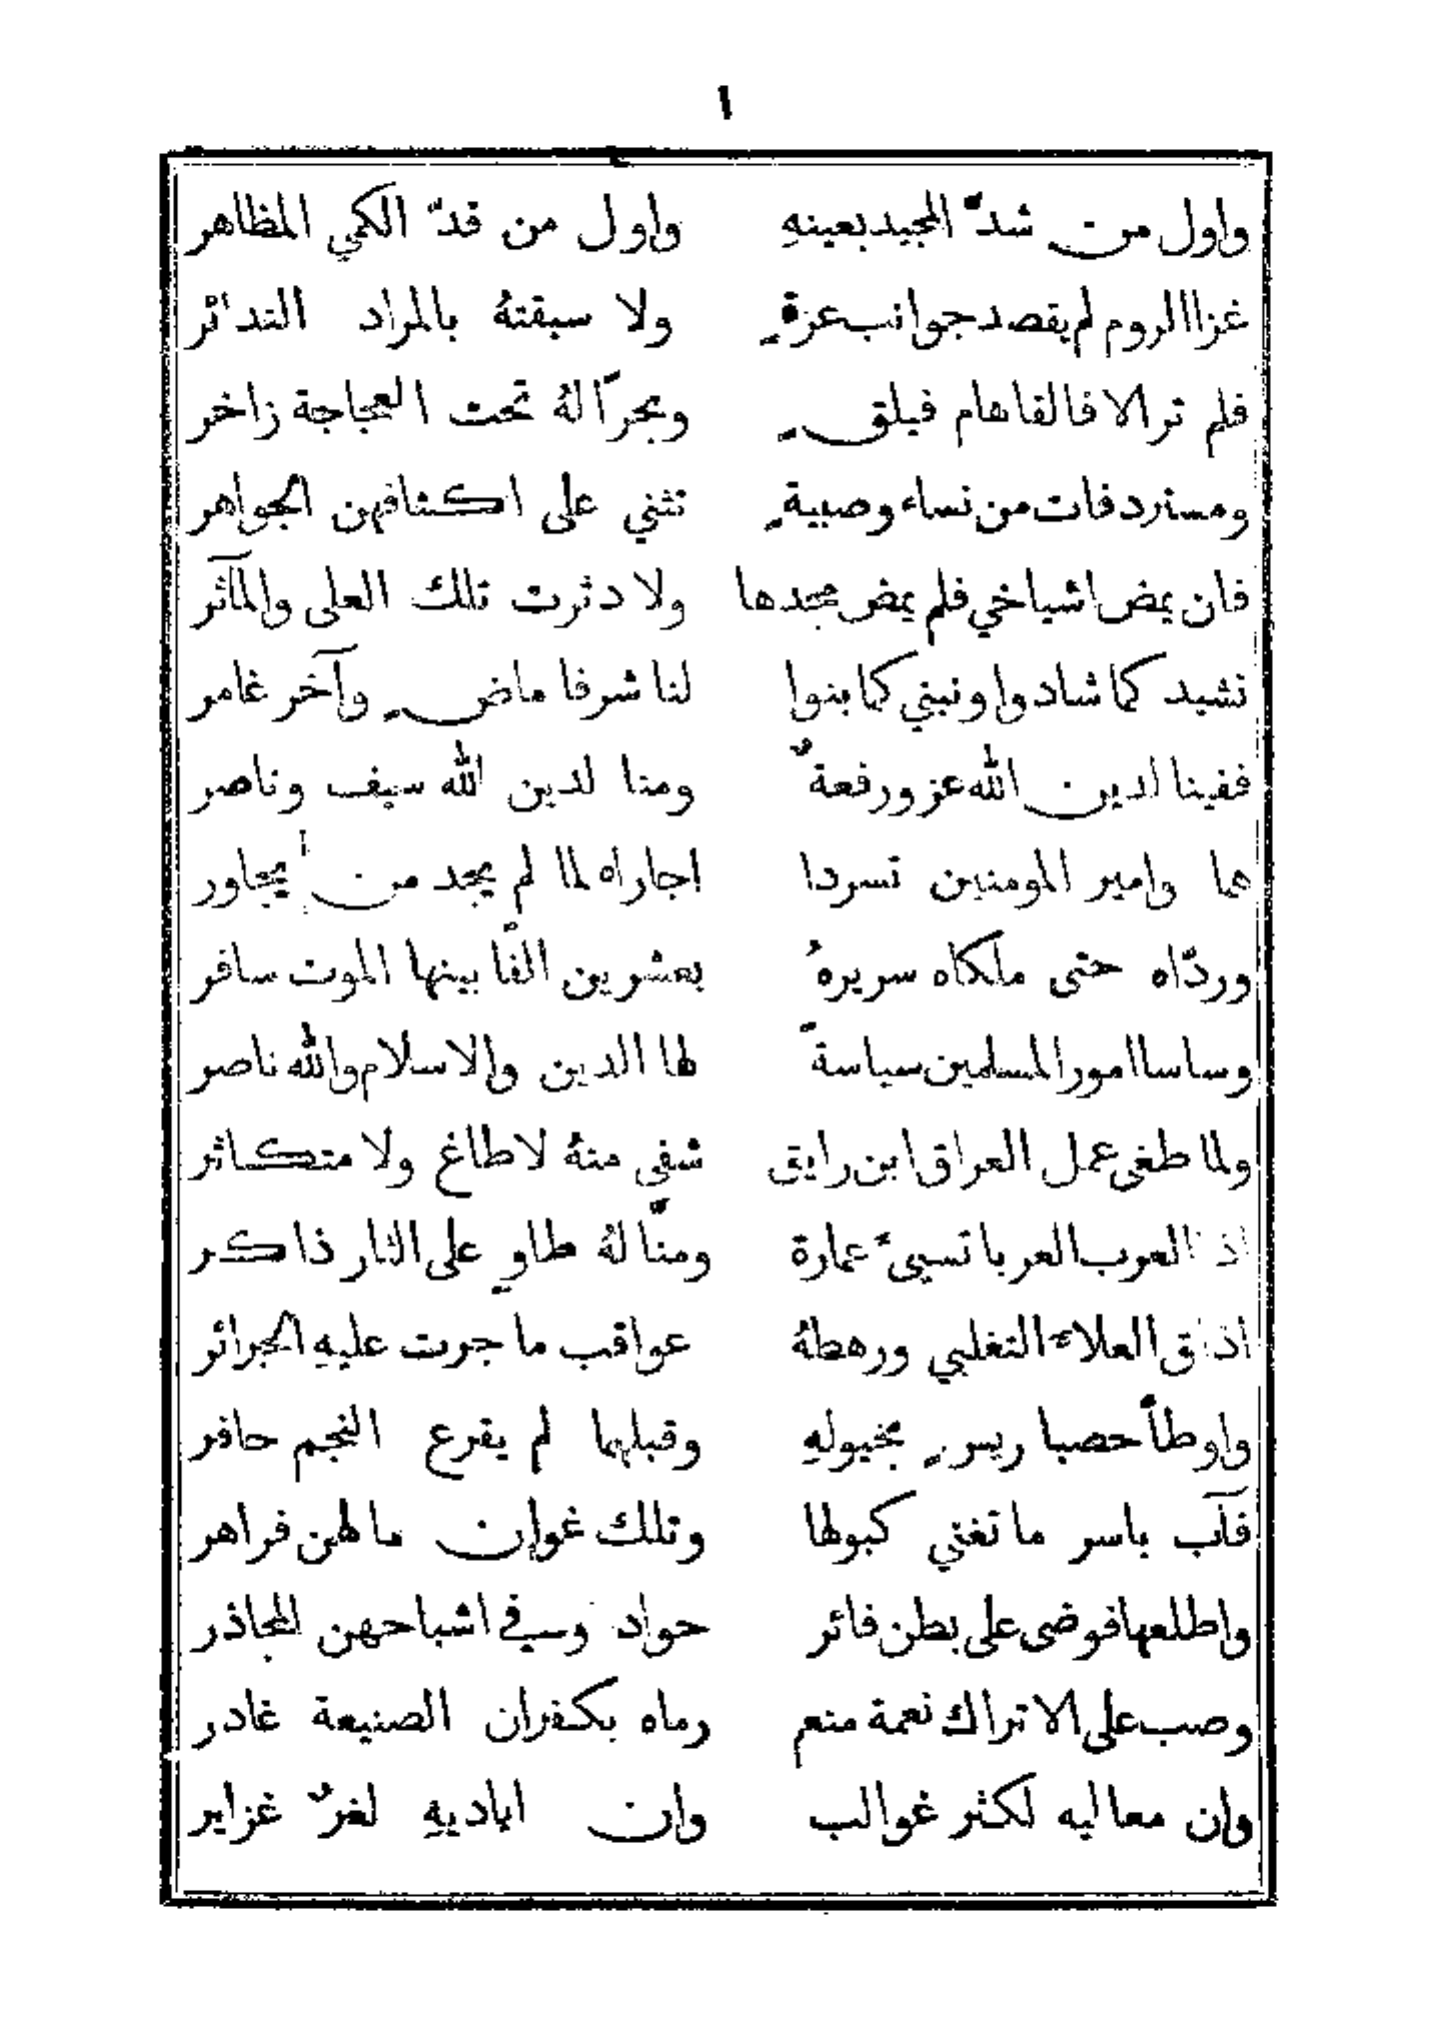 ١
واول من شدّ المجيد بعينهِ واول من قدّ الكمي المظاهر
غزا الروم لم يقصد جوانب عزةٍ ولا سبقتهُ بالمراد النداىْر
فلم تر الا فالقا هام فيلقٍ وبحرًا لهُ تحت العجاجة زاخر
ومستردفات من نساء وصبيةٍ تثني على اكتافهن الجواهر
فان يمض اشياخي فلم يمض مجدها ولا دثرت تلك العلى والمآثر
نشيد كما شادوا ونبني كما بنوا لنا شرفا ماضٍ وآخر غامر
ففينا لدين الله عز ورفعةٌ ومنا لدين الله سيف وناصر
هما وامير المومنين تسردا اجاراه لما لم يجد من يجاور
وردّاه حتى ملكاه سريرهُ بعشرين الفًا بينها الموت سافر
وساسا امور المسلمين سياسةً لها الدين والاسلام والله ناصر
ولما طغى عمل العراق ابن رايق شفى منهُ لا طاغ ولا متكاثر
اذ العرب العربا تسيىء عمارة ومنّا لهُ طاوٍ على الثار ذاكر
اذاق العلاء التغلبي ورهطهُ عواقب ما جرت عليهِ الجرائر
واوطأ حصبا ريسٍ بخيولهِ وقبلهما لم يقرع النجم حافر
فآب باسر ما تغني كبولها وتلك غوان ما لهن فراهر
واطلعها فوضى على بطن فائر حواد وسيفي اشباحهن المجاذر
وصب على الاتراك نعمة منعم رماه بكفران الصنيعة غادر
وان معاليه لكثر غوالب وان اياديهِ لغرٌ غزاير